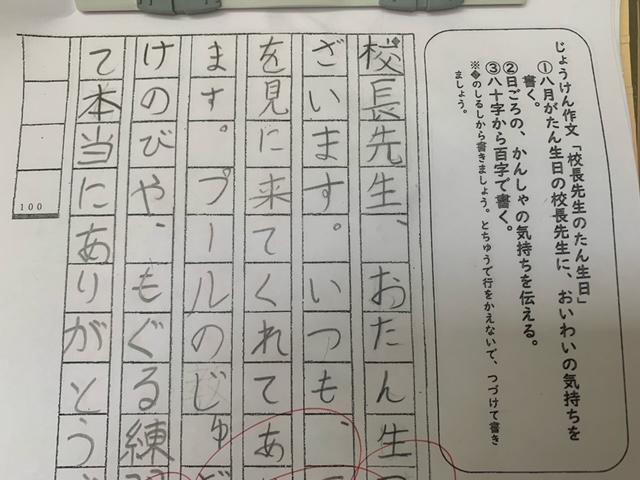 じょうけん作文「校長先生のたん生日」
①八月がたん生日の校長先生に、おいわいの気持ちを
書く。
②日ごろの、かんしゃの気持ちを伝える。
③八十字から百字で書く。
※◆のしるしから書きましょう。とちゅうで行をかえないで、つづけて書き
ましょう。
校長先生、おたん生
ざいます。いつも、
を見に来てくれてあ
ます。プールのじゅ
けのびや、もぐる練
て本当にありがとう
100